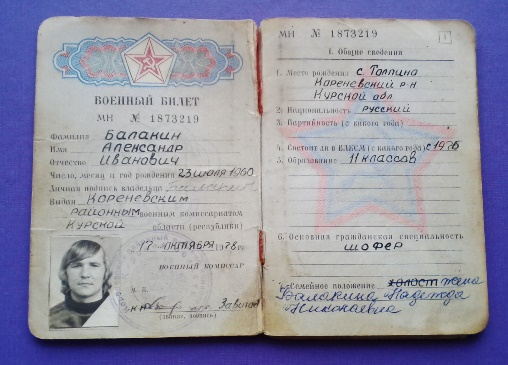 ВОЕННЫЙ БИЛЕТ
МН № 1873219
Фамилия Балакин
Имя Александр
Отчество Иванович
Число, месяц и год рождения 23 июля 1960
Личная подпись владельца
Выдан Кореневским
районным военным комиссариатом
Курской области (республики)
17 октября 1978 г.
ВОЕННЫЙ КОМИССАР
М. П.
(звание, подпись)
МН № 1873219
1
I. Общие сведения
1. Место рождения с. Толпино
Кореневский р-н
Курской обл
2. Национальность русский
3. Партийность (с какого года)
4. Состоит ли в ВЛКСМ (с какого года) с 1976
5. Образование 11 классов
6. Основная гражданская специальность
шофер
7. Семейное положение холост жена
Балакина Надежда
Николаевна